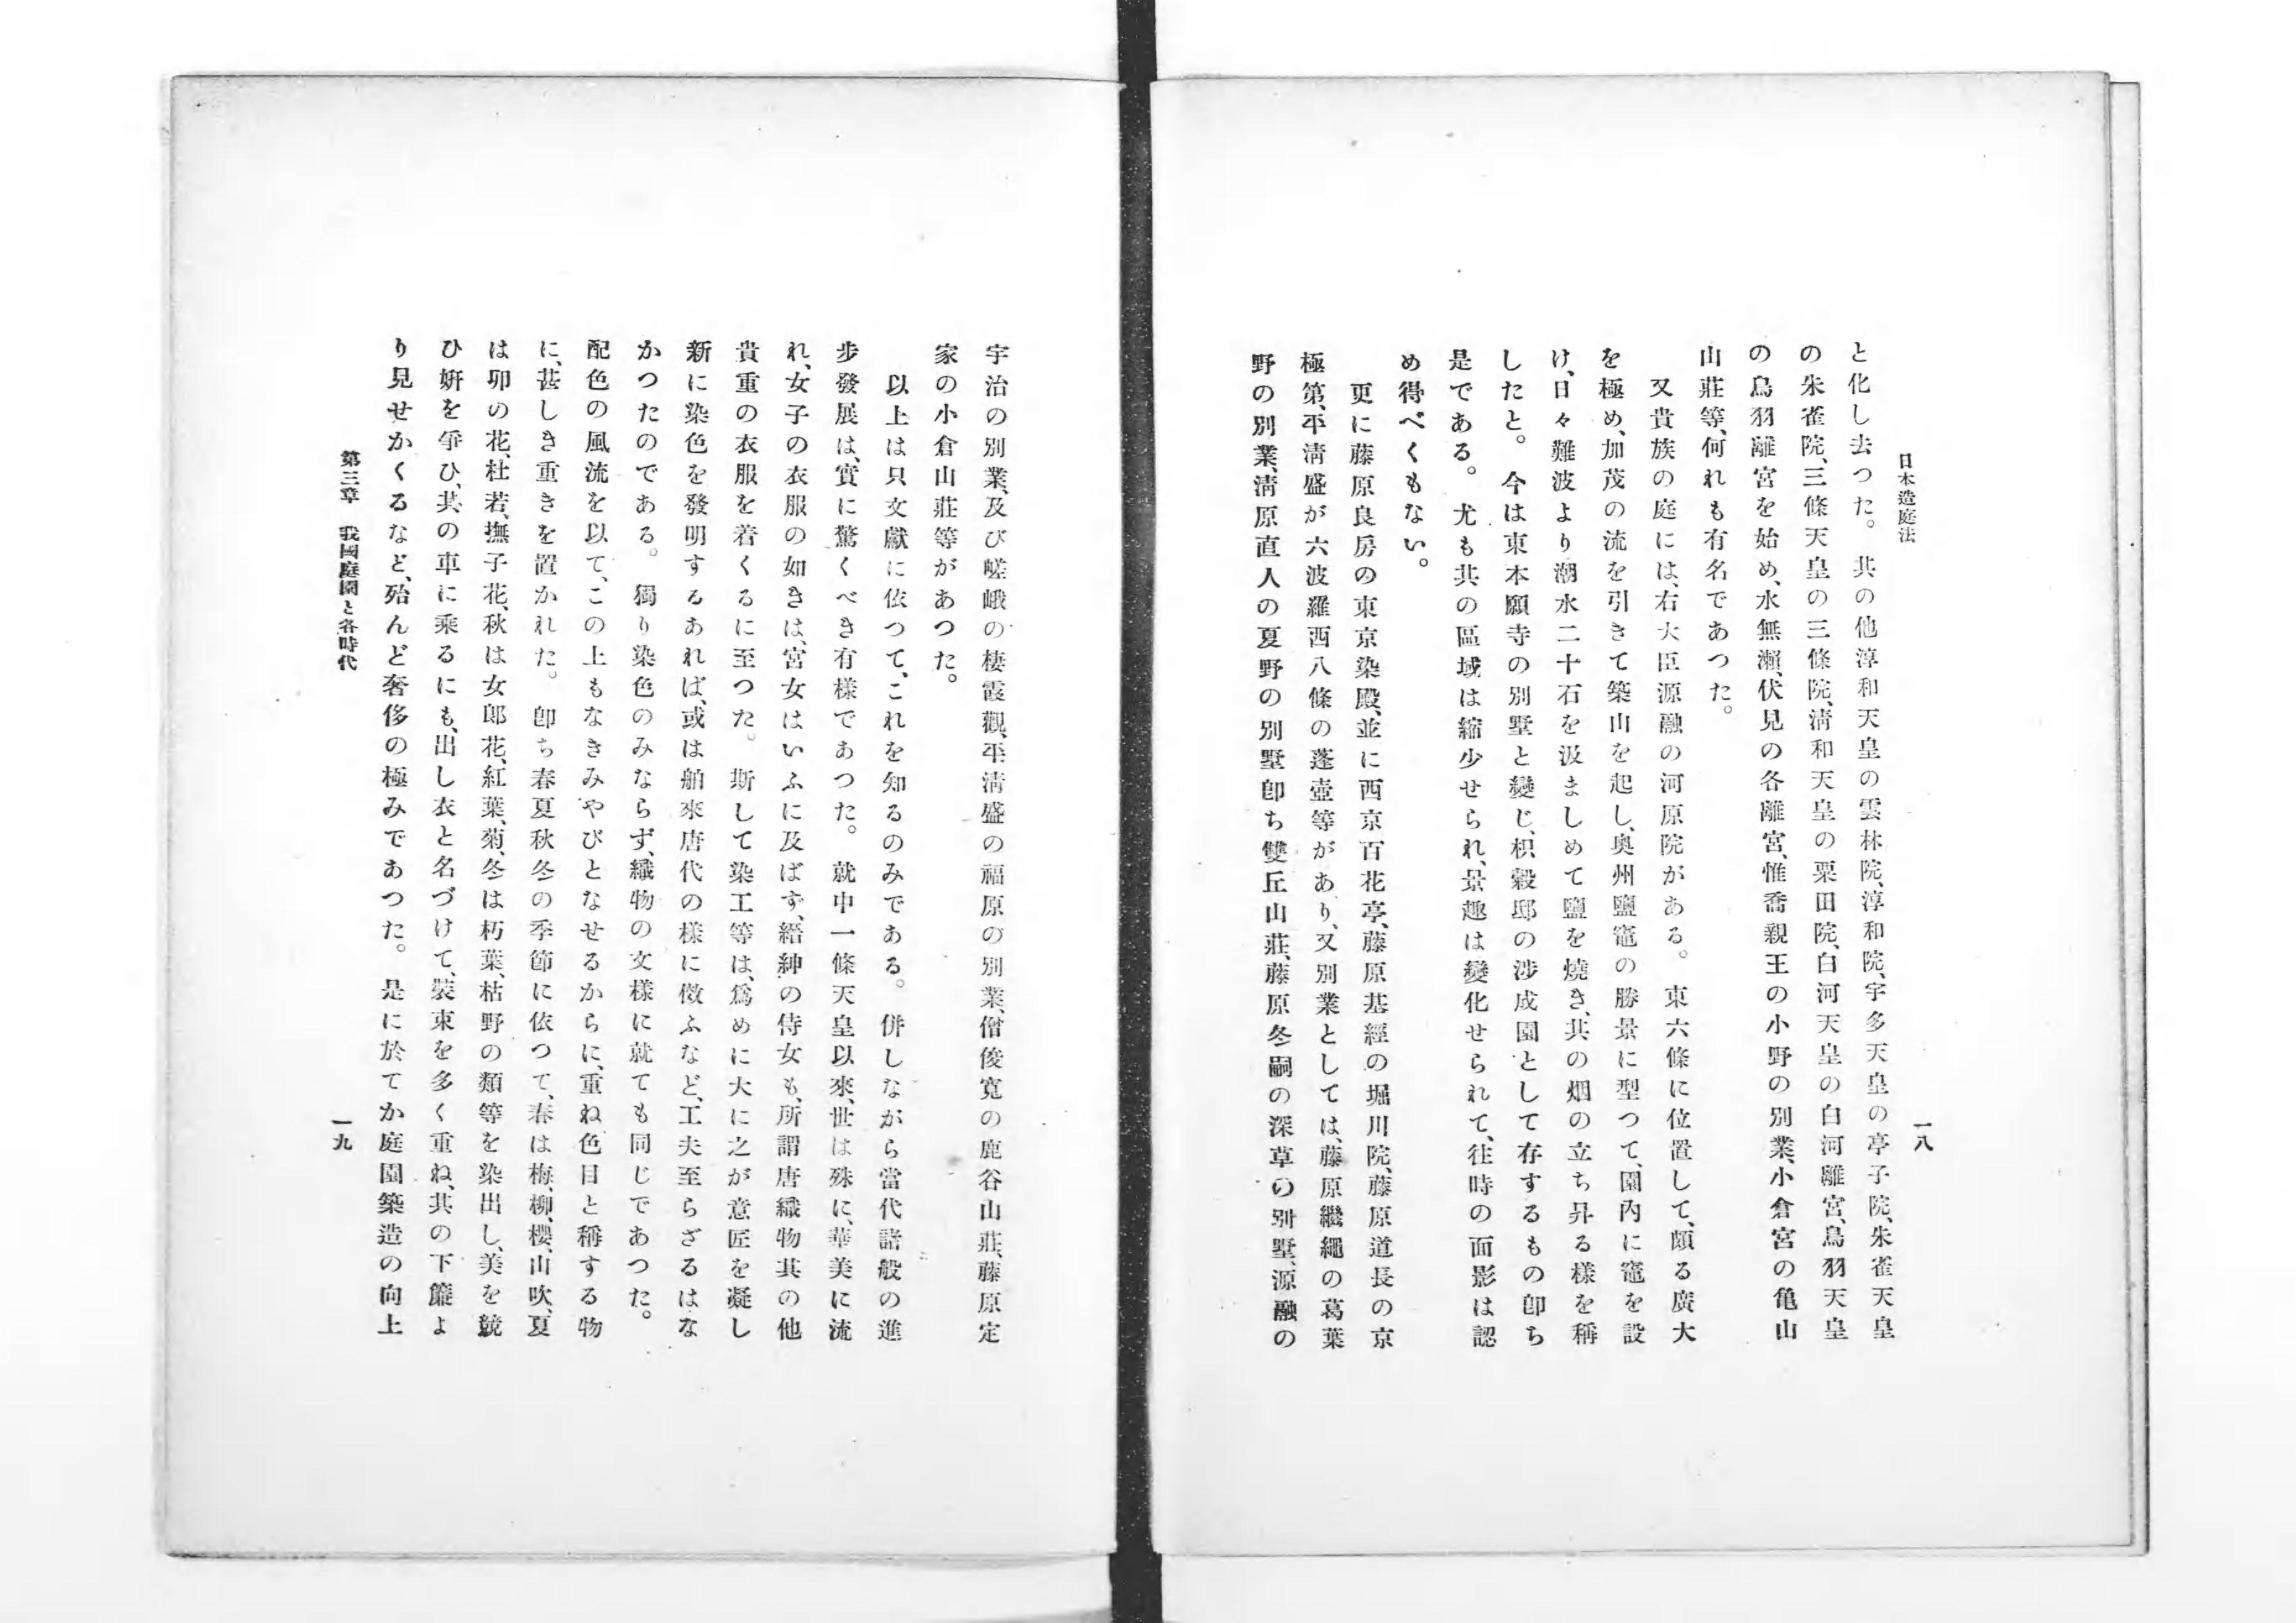 日本造庭法
一八
と化し去つた。其の他淳和天皇の雲林院、淳和院、宇多天皇の亭子院、朱雀天皇
の朱雀院、三條天皇の三條院、淸和天皇の粟田院、白河天皇の白河離宮、鳥羽天皇
の鳥羽離宮を始め、水無瀨、伏見の各離宮、惟喬親王の小野の別業、小倉宮の亀山
山莊等、何れも有名であつた。
又貴族の庭には、右大臣源融の河原院がある。東六條に位置して、頗る廣大
を極め、加茂の流を引きて築山を起し、奥州鹽竈の勝景に型つて、園內に竈を設
け、日々難波より潮水二十石を汲ましめて鹽を燒き、其の烟の立ち昇る樣を稱
したと。今は東本願寺の別墅と變じ、枳殼邸の涉成園として存するもの卽ち
是である。尤も其の區域は縮少せられ、景趣は變化せられて、往時の面影は認
め得べくもない。
更に藤原良房の東京染殿、並に西京百花亭、藤原基經の堀川院、藤原道長の京
極第、平淸盛が六波羅西八條の蓬壺等があり、又別業としては、藤原繼繩の葛葉
野の別業、淸原直人の夏野の別墅卽ち雙丘山莊、藤原冬嗣の深草の別墅、源融の
宇治の別業、及び嵯峨の棲霞觀、平淸盛の福原の別業、僧俊寬の鹿谷山莊、藤原定
家の小倉山莊等があつた。
以上は只文獻に依つて、これを知るのみである。併しながら當代諸般の進
步發展は、實に驚くべき有樣であつた。就中一條天皇以來、世は殊に、華美に流
れ、女子の衣服の如きは、宮女はいふに及ばず、縉紳の侍女も、所謂唐織物其の他
貴重の衣服を着くるに至つた。斯して染工等は、爲めに大に之が意匠を凝し
新に染色を發明するあれば、或は舶來唐代の樣に傚ふなど、工夫至らざるはな
かつたのである。獨り染色のみならず、織物の文樣に就ても同じであつた。
配色の風流を以て、この上もなきみやびとなせるからに、重ね色目と稱する物
に、甚しき重きを置かれた。卽ち春夏秋冬の季節に依つて、春は梅、柳、櫻、山吹、夏
は卯の花、杜若、撫子花、秋は女郞花、紅葉、菊、冬は朽葉、枯野の類等を染出し、美を競
ひ姸を爭ひ、其の車に乘るにも、出し衣と名づけて、裝束を多く重ね、其の下簾よ
り見せかくるなど、殆んど奢侈の極みであつた。是に於てか庭園築造の向上
第三章　我國庭園と各時代
一九